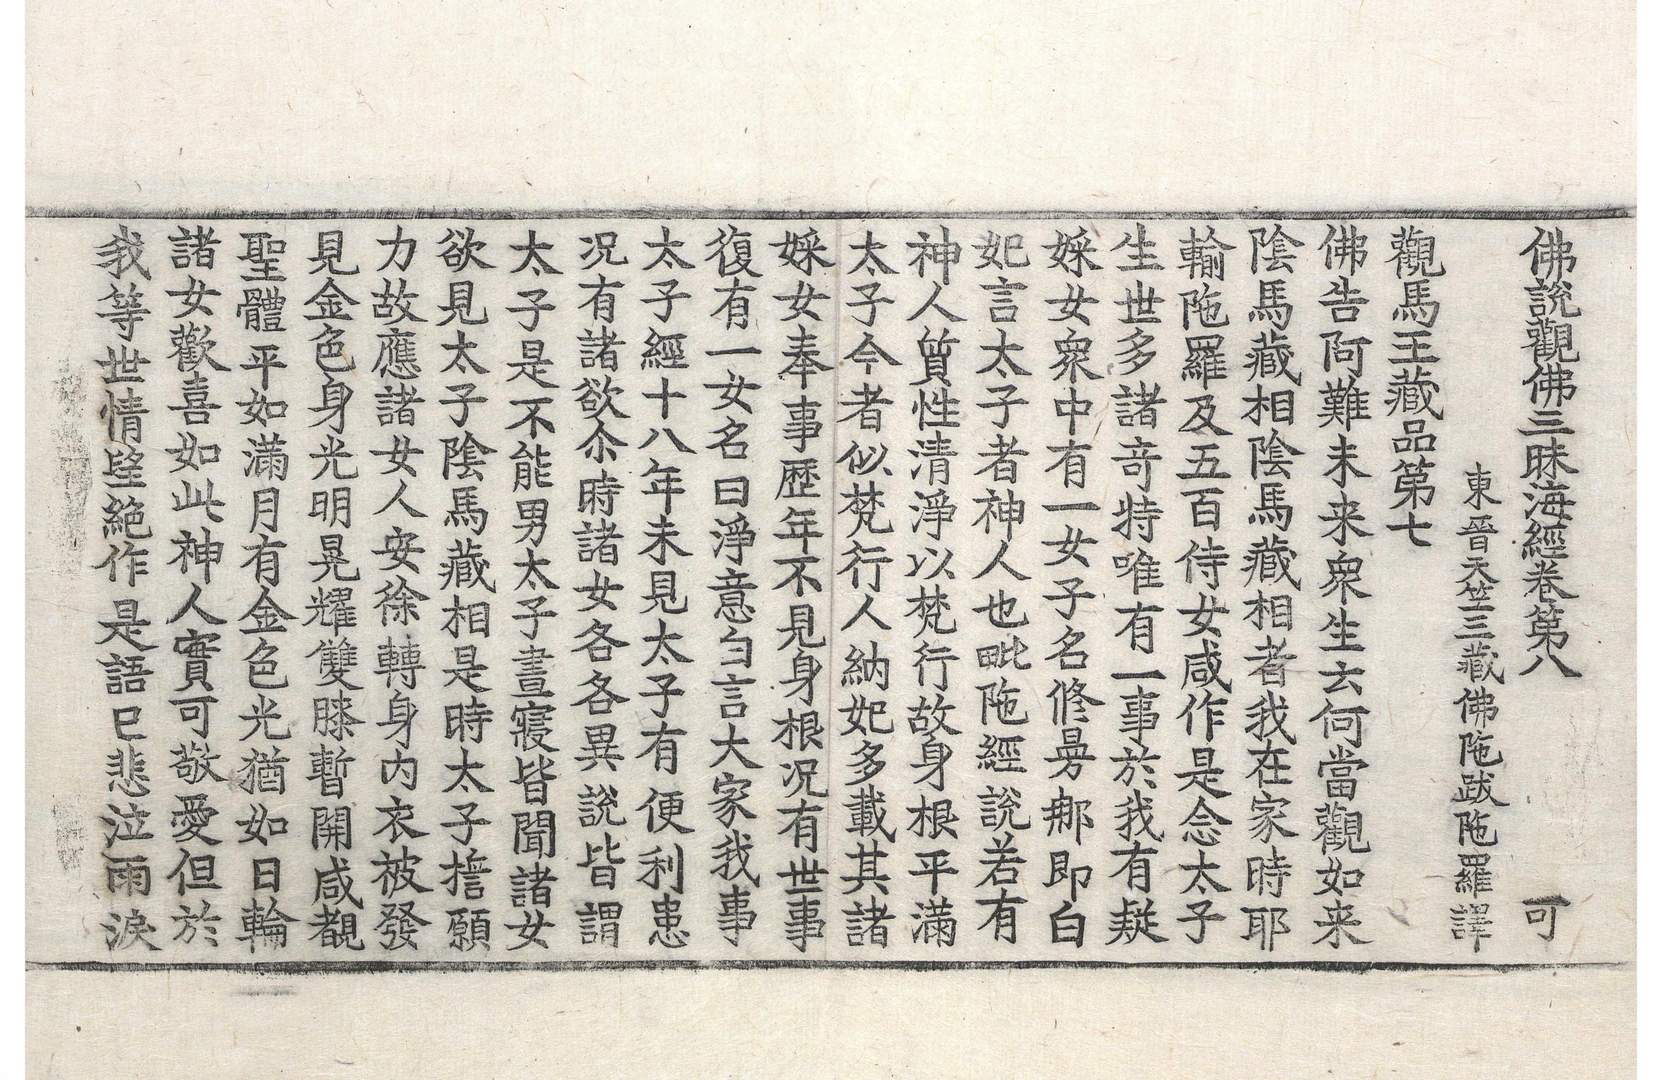 佛說觀佛三昧海經卷第八 可
東晉天竺三藏佛陁跋陁羅譯
觀馬王藏品第七
佛告阿難未来衆生云何當觀如来
陰馬藏相陰馬藏相者我在家時耶
輸陁羅及五百侍女咸作是念太子
生世多諸竒特唯有一事於我有疑
婇女衆中有一女子名修曼那即白
妃言太子者神人也毗陁經說若有
神人質性清淨以梵行故身根平滿
太子今者似梵行人納妃多載其諸
婇女奉事歷年不見身根况有世事
復有一女名曰淨意匃言大家我事
太子經十八年未見太子有便利患
况有諸欲尒時諸女各各異說皆謂
太子是不能男太子晝寢皆聞諸女
欲見太子陰馬藏相是時太子擔願
力故應諸女人安徐轉身內衣被發
見金色身光明晃耀雙膝暫開咸覩
聖體平如滿月有金色光猶如日輪
諸女歡喜如此神人實可敬愛但於
我等世情望絕作是語已悲泣雨淚